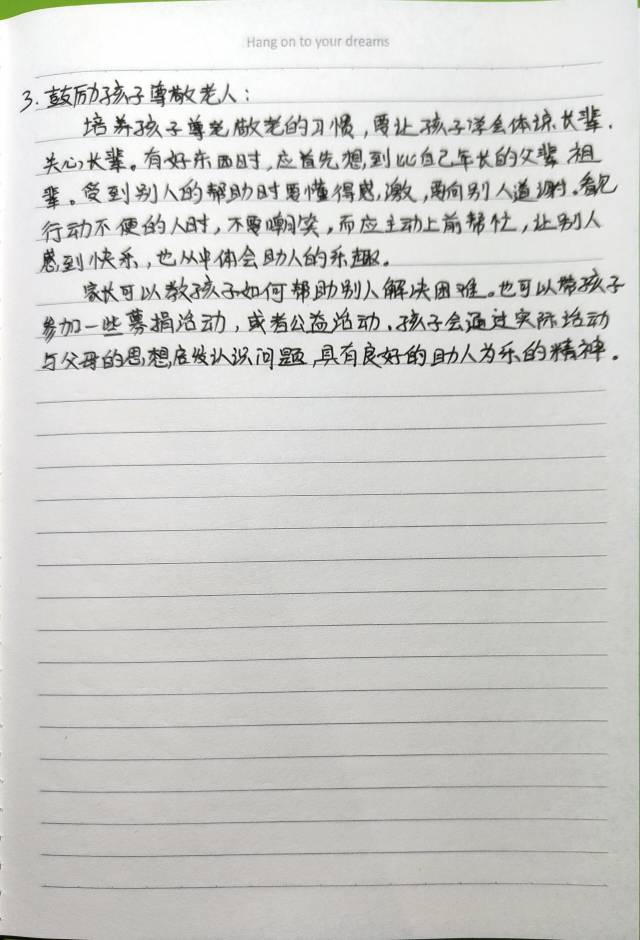 Hang on to your dreams
3. 鼓励孩子尊敬老人：
培养孩子尊老敬老的习惯，要让孩子学会体谅长辈，
关心长辈。有好东西时，应首先想到比自己年长的父辈、祖
辈。受到别人的帮助时要懂得感激，要向别人道谢。看见
行动不便的人时，不要嘲笑，而应主动上前帮忙，让别人
感到快乐，也从中体会助人的乐趣。
家长可以教孩子如何帮助别人解决困难。也可以带孩子
参加一些募捐活动，或者公益活动、孩子会通过实际活动
与父母的思想启发认识问题，具有良好的助人为乐的精神。